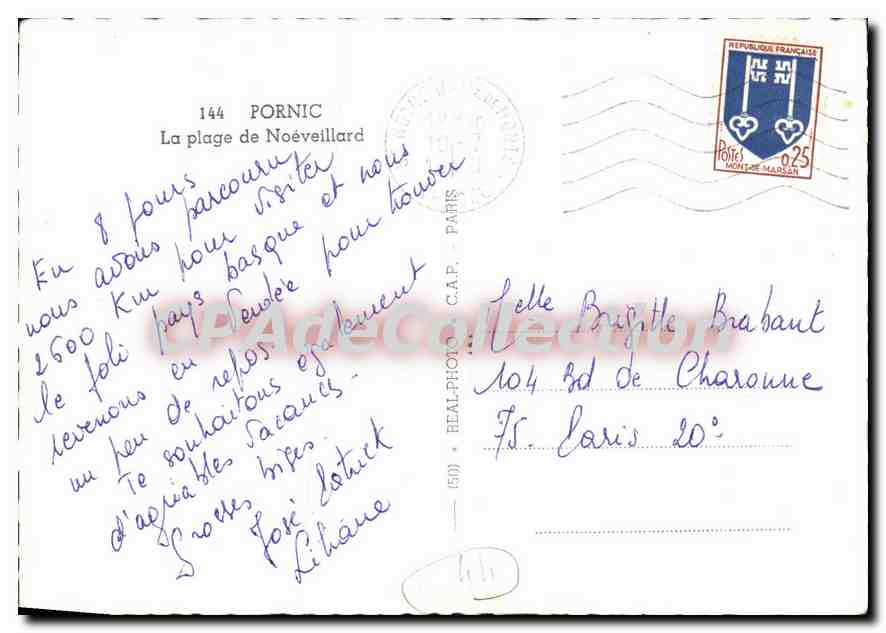 144 PORNIC
La plage de Noéveillard
En 8 jours
nous avons parcouru
2600 Km pour visiter
le joli pays basque et nous
revenons en Vendée pour trouver
un peu de repos.
Te souhaitons également
d'agréables vacances.
Grosses bises.
José Patrick
Liliane
(50) • REAL-PHOTO • C.A.P. - PARIS
REPUBLIQUE FRANÇAISE
POSTES 0,25
MONT-DE-MARSAN
Melle Brigitte Brabant
104 Bd de Charonne
75. Paris 20e
44
CPAdeCollection